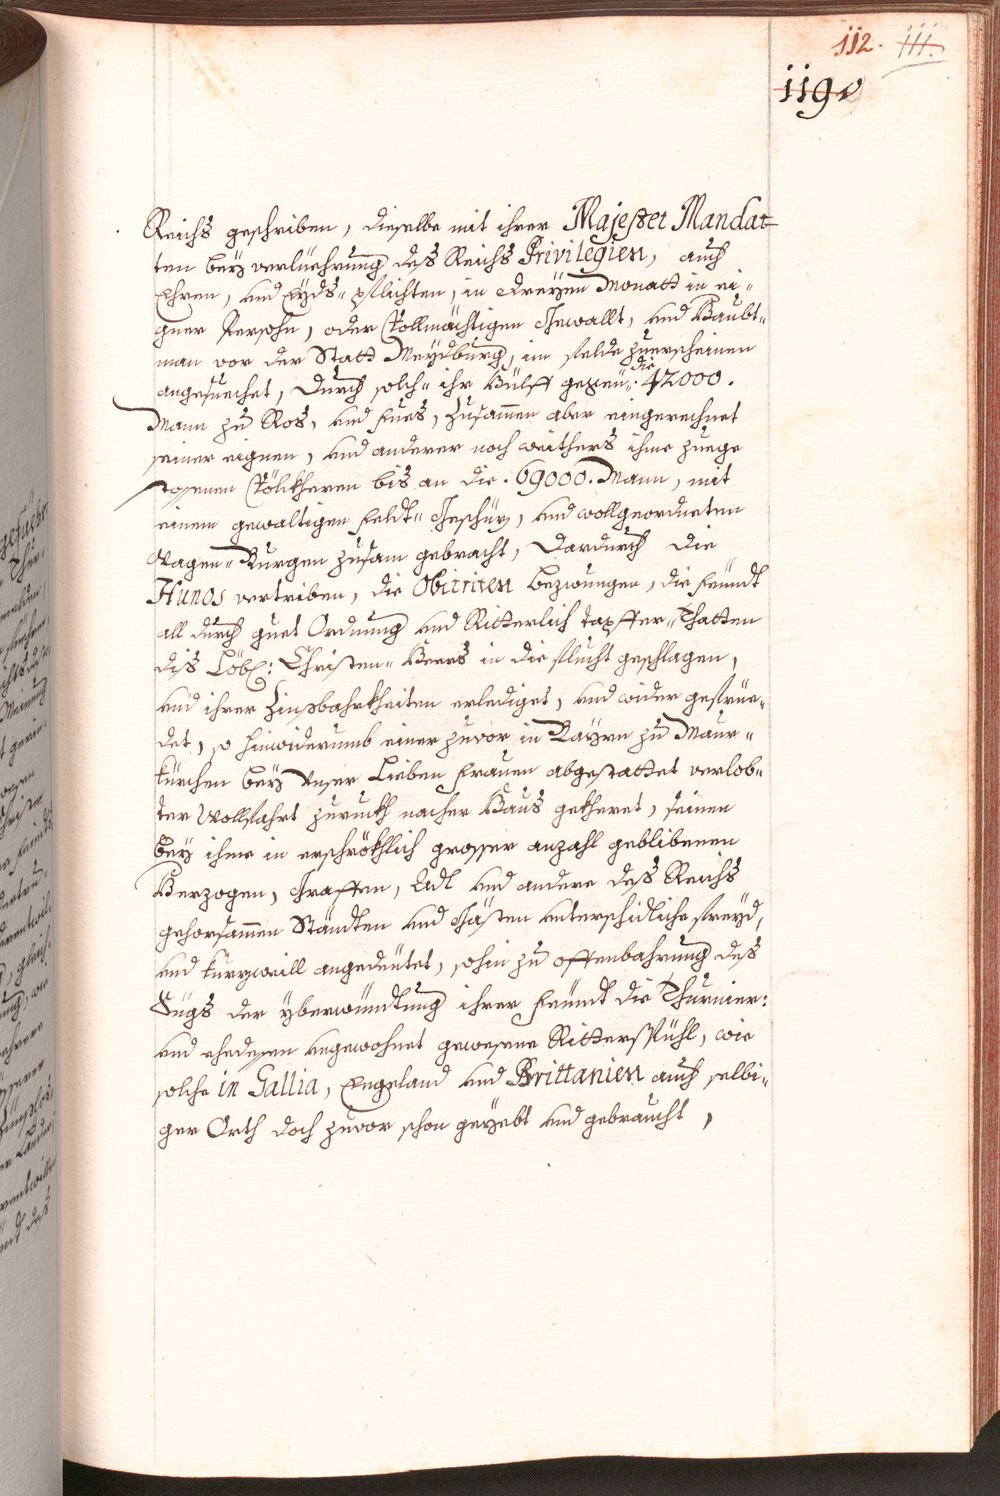 112. 111.
119
Reichs geschriben, dieselbe mit ihrer Majestet Mandat
ten bey verluehrung deß Reichs Privilegien, auch
Ehren, und Eyds-pflichten, in dreyen Monatt in ei-
gner Persohn, oder Vollmächtigen Gewallt, und Haubt-
man vor der Statt Meydburg, im felde zuerscheinen
angesuechet, durch solch-ihr Hülff gegen die 42000.
Mann zu Ros, und Fues, zusammen aber eingerechnet
seiner eignen, und anderer noch weithers ihme zuege
stossenen Völckheren bis an die 69000. Mann, mit
einem gewaltigen Feldt-Geschüz, und wollgeordneten
Wagen-Burgen zusam gebracht, Dardurch die
Hunos vertriben, die Obitriten bezwungen, die feindt
all durch guet Ordnung und Ritterlich tapffer-Thatten
dis Löbl: Christen-Heers in die flucht geschlagen,
und ihrer Zinßbahrkheiten erlediget, und wider gefrüe-
det, so hinwiderumb einer zuvor in Bayrn zu Maur-
kürchen bey Unser Lieben Frauen abgestattet verlob-
ter Wollfahrt zuruckh nacher Haus gekheret, seinen
bey ihme in erschröckhlich grosser anzahl geblibenen
Herzogen, Graffen, Adl und andere deß Reichs
gehorsammen Ständten und Gästen unterschidliche freyd,
und kurzweill angedeutet, sohin zu offenbahrung deß
Sügs der yberwündtung ihrer Feindt die Thurnier:
und ehedessen ungewohnt gewesene Ritterspühl, wie
solche in Gallia, Engeland und Brittanien auch selbi-
ger Orth doch zuvor schon geyebt und gebraucht,